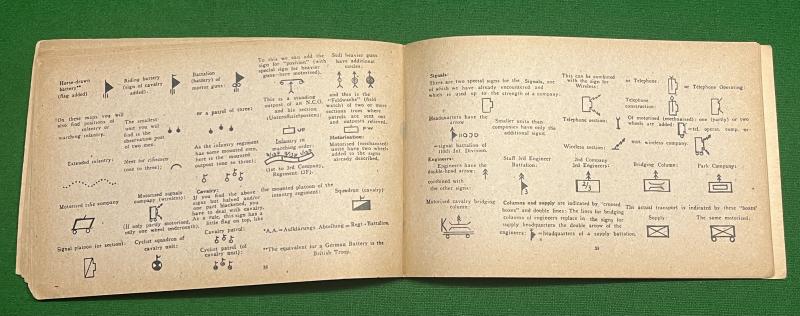 Horse-drawn
battery**
(flag added)
Riding battery
(sign of cavalry
added).
Battalion
(battery) of
mortar guns:
To this we can add the
sign for "position," (with
special sign for heavier
guns—here motorised).
Still heavier guns
have additional
circles:
*On these maps you will
also find positions of
infantry or
marching infantry.
The smallest
unit you will
find is the
observation post
of two men.
or a patrol of three:
This is a standing
outpost of an N.C.O.
and his section
(Unteroffizierposten):
and this is the
"Feldwache" (field
watch) of two or more
sections from where
patrols are sent out
and outposts relieved.
UP
FW
Extended infantry:
Nest for riflemen
(one to three):
As the infantry regiment
has some mounted men,
here is the mounted
outpost (one to three):
Infantry in
marching order:
(1st to 3rd Company,
Regiment
Motorisation:
Motorised (mechanised)
units have two wheels
added to the signs
already described.
Motorised rifle company
Motorised signals
company (wireless):
(If only partly motorised,
only one wheel underneath).
Cavalry:
If you find the above
signs but halved and/or
one part blackened, you
have to deal with cavalry.
As a rule, this sign has a
little flag on top, like
the mounted platoon of the
infantry regiment:
Squadron (cavalry)
Signal platoon (or section).
Cyclist squadron of
cavalry unit:
Cavalry patrol:
Cyclist patrol (of
cavalry unit):
*A.A.=Aufklärungs Abteilung=Regt-Battalion.
**The equivalent for a German Battery is the
British Troop.
Signals:
There are two special signs for the Signals, one
of which we have already encountered and
which is used up to the strength of a company:
This can be combined
with the sign for
Wireless:
or Telephone:
or Telephone Operating:
Headquarters have the
arrow
=signal battalion of
110th Inf. Division.
Smaller units than
companies have only the
additional sign:
Telephone section:
Telephone
construction:
Or motorised (mechanised: one (partly) or two
wheels are added):
=tel. opera. comp. or
Wireless section:
mot. wireless company:
Engineers:
Engineers have the
double-head arrow:
combined with
the other signs:
Staff 3rd Engineer
Battalion:
3
2nd Company
3rd Engineers:
2/3
Bridging Column:
Park Company:
Motorised cavalry bridging
column:
K
Columns and supply are indicated by "crossed
boxes" and double lines: The lines for bridging
columns of engineers replace in the signs for
supply headquarters the double arrow of the
engineers:
=headquarters of a supply battalion.
The actual transport is indicated by these "boxes"
Supply:
The same motorised: